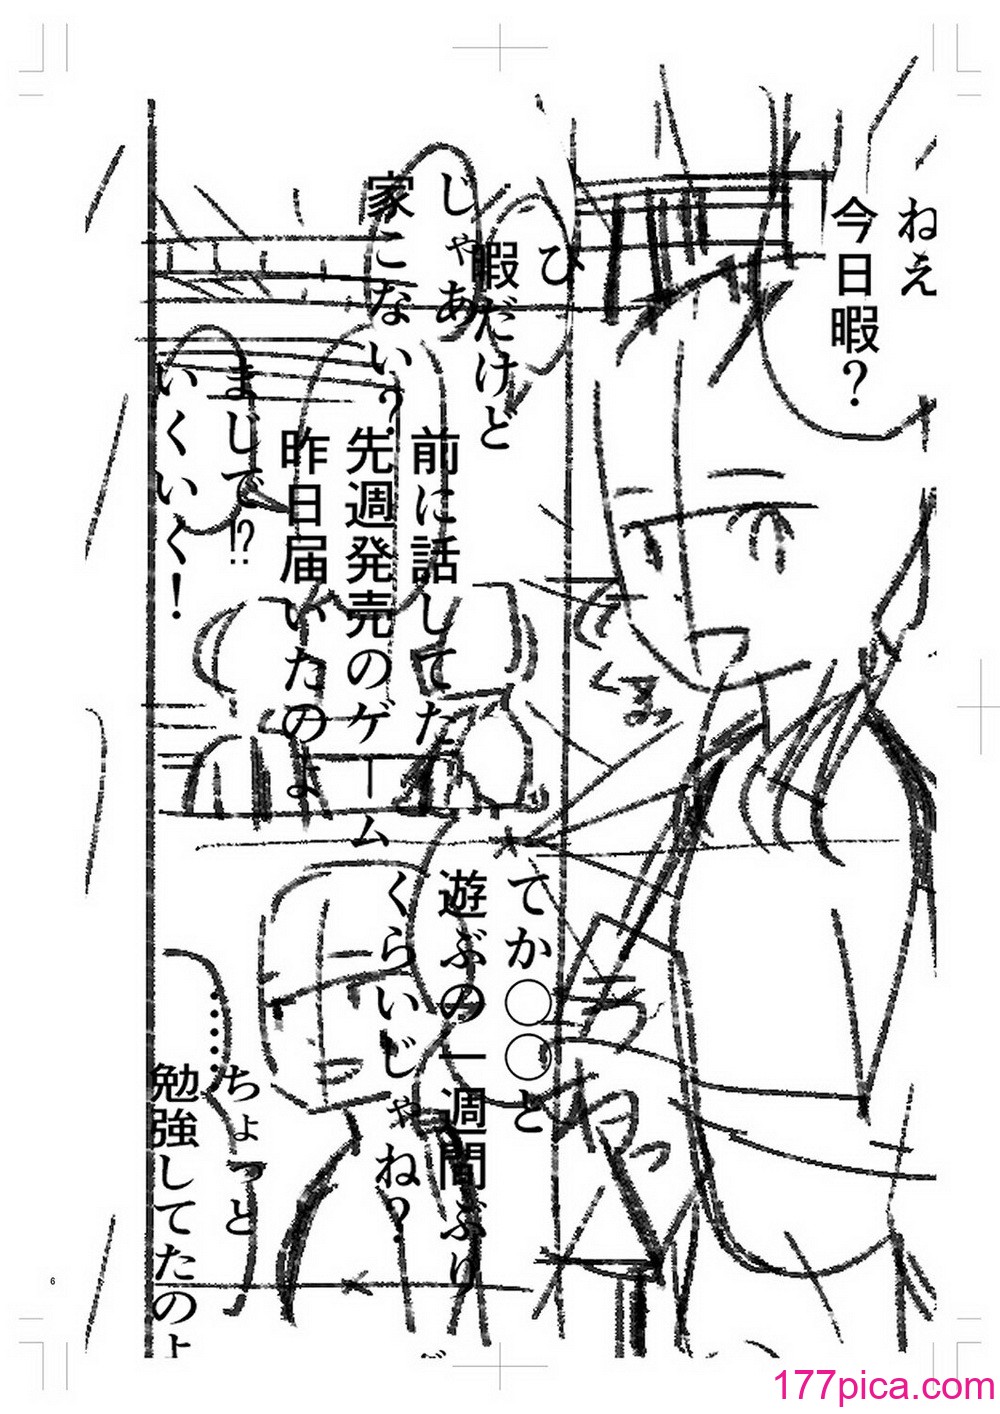 ねえ
今日暇？
ひ
暇だけど
じゃあ
家こない？
前に話してた
先週発売のゲーム
昨日届いたのよ
まじで⁉
いくいく！
てか〇〇と
遊ぶの一週間ぶり
くらいじゃね？
……ちょっと
勉強してたのよ
6
177pica.com